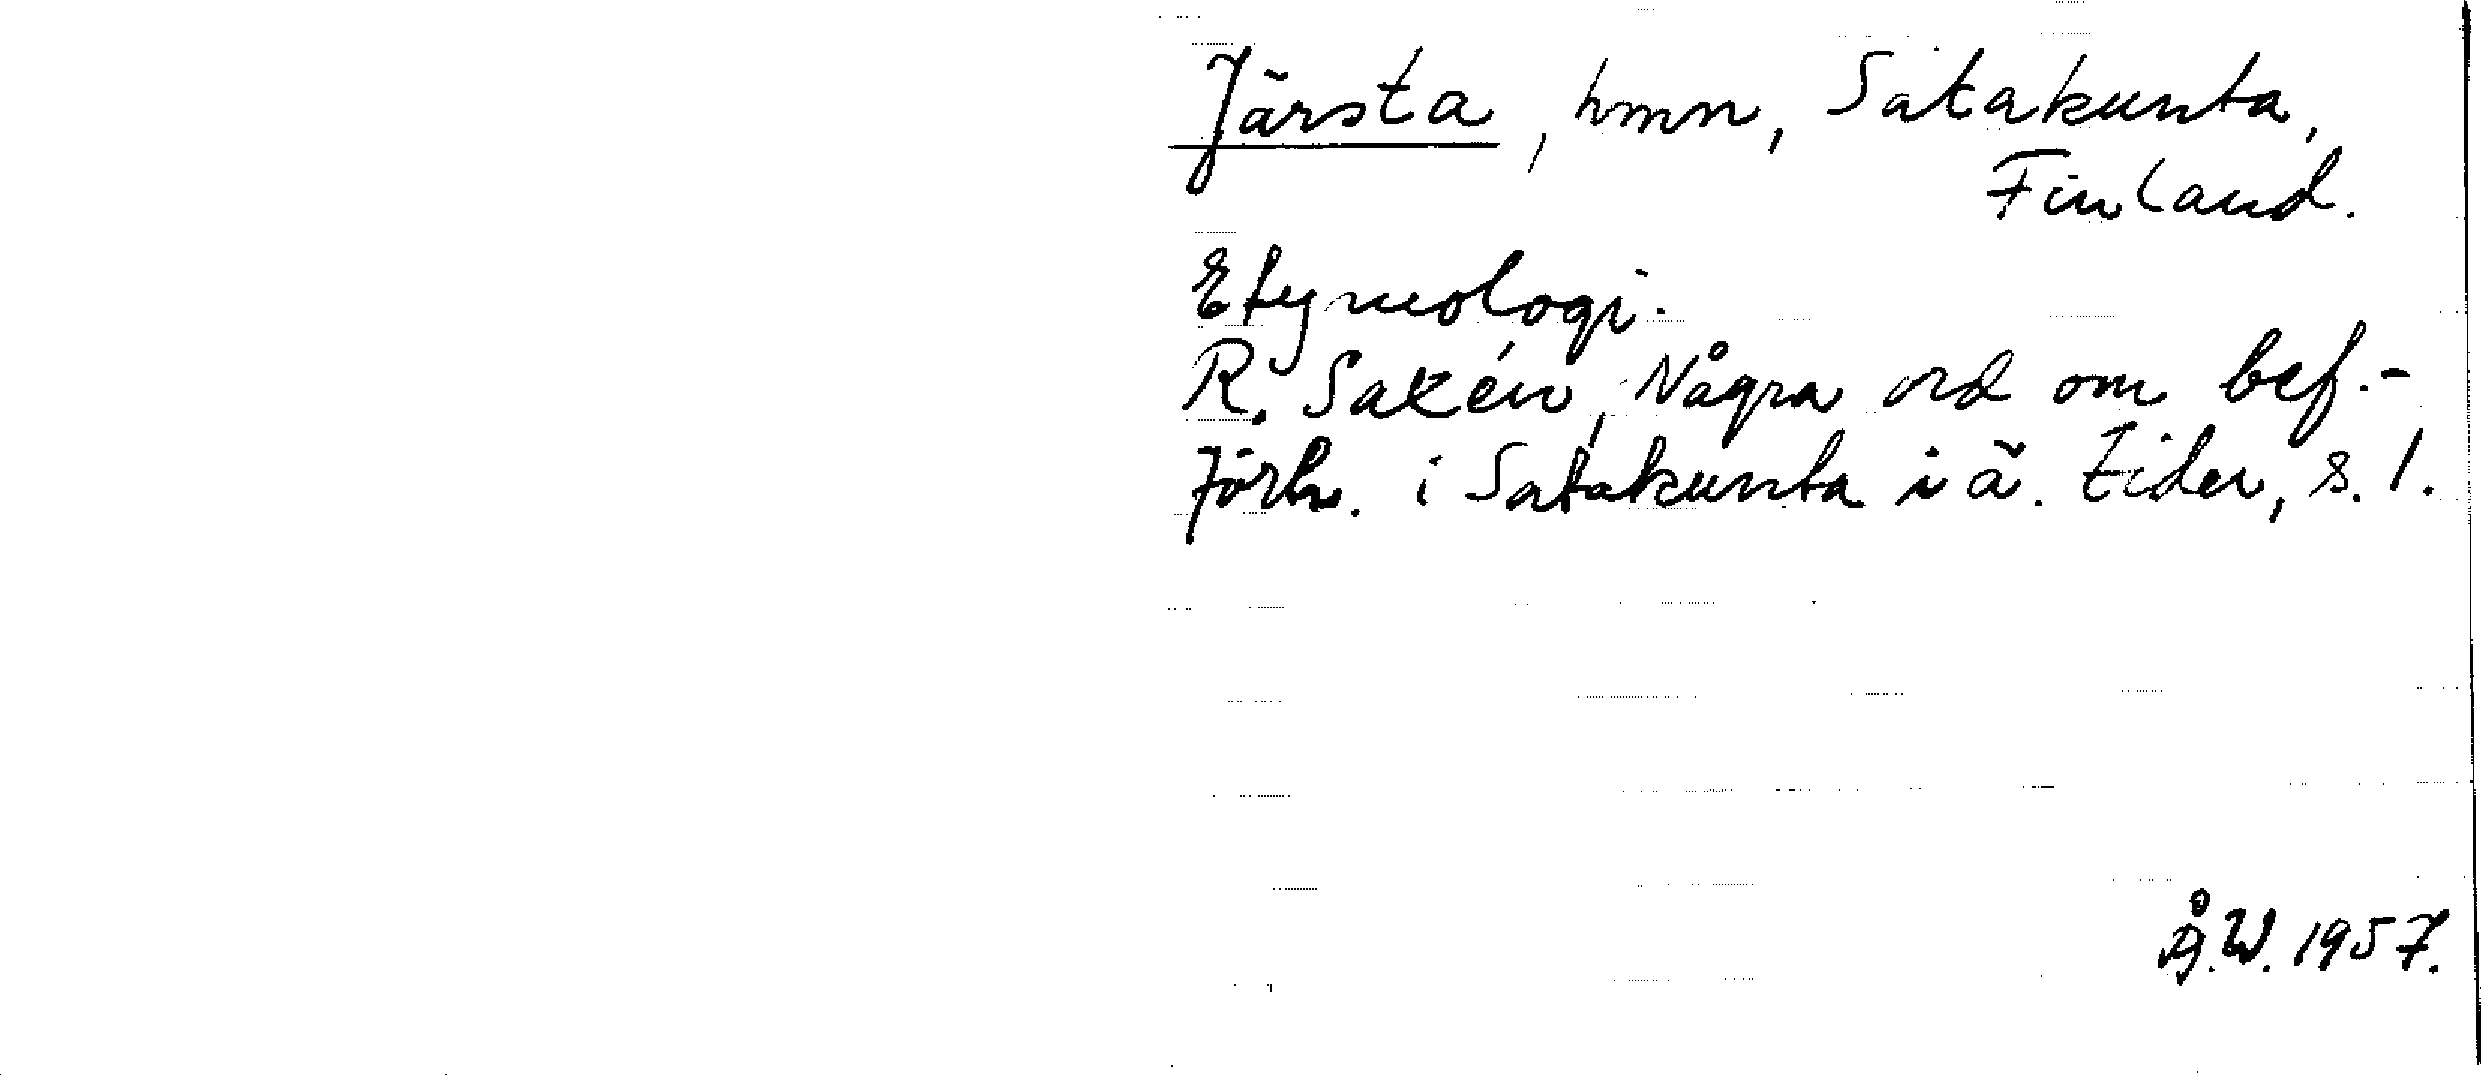 Järsta, hmn, Satakunta,
Finland.
Etymologi.
R. Saxén, Några ord om bef.-
förh. i Satakunta i ä. tider, s. 1.
Å.W. 1957.